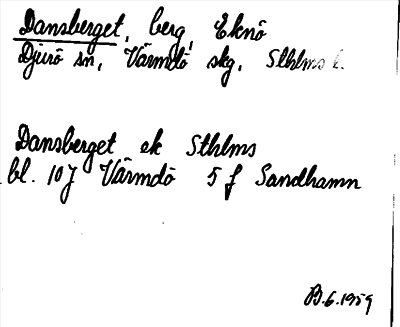 Dansberget, berg, Eknö
Djurö sn, Värmdö skg, Sthlms l.
Dansberget ek Sthlms
bl. 10J Värmdö 5 f Sandhamn
B.6.1959